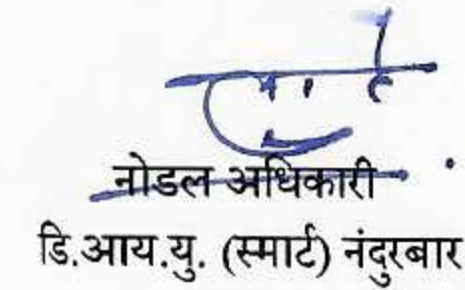 नोडल अधिकारी
डि.आय.यु. (स्मार्ट) नंदुरबार